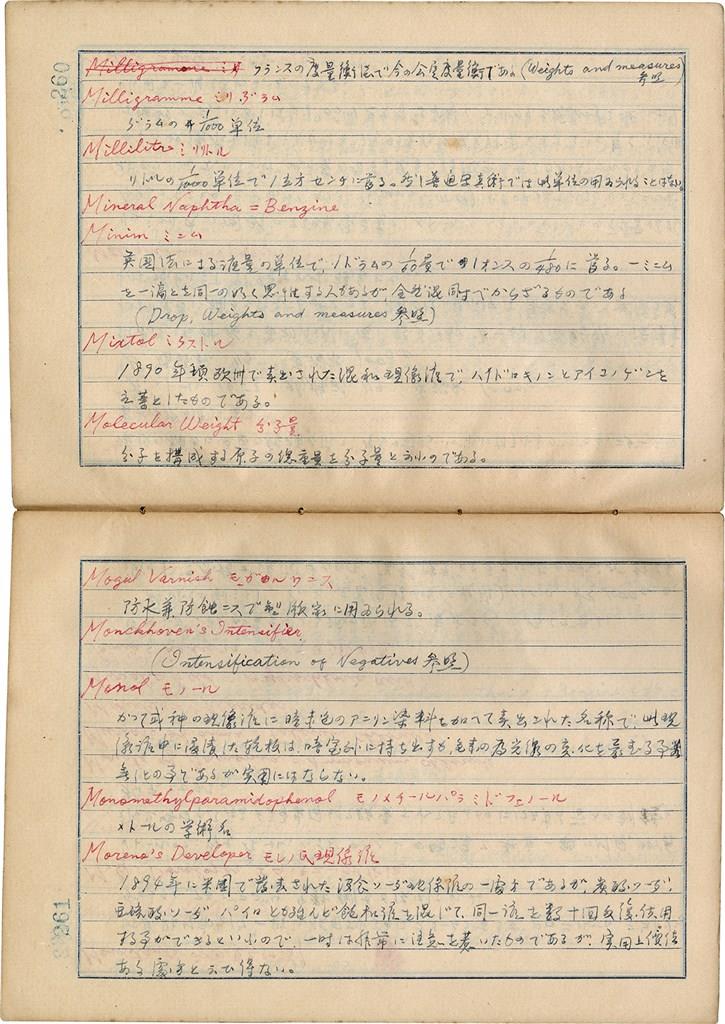 260
Milligramme ミリ フランスの度量衡法で今の公定度量衡である (Weights and measures 参照)
Milligramme ミリグラム
グラムの 1/1000 単位
Millilitre ミリリトル
リトルの 1/1000 単位で1立方センチに當る。然し普通写真術では此単位の用ゐられることはない。
Mineral Naphtha = Benzine
Minim ミニム
英国法による液量の単位で、1ドラムの 1/60 量で 1オンスの 1/480 に當る。一ミニム
を一滴とを同一の如く思惟する人もあるが、全然混同すべからざるものである
(Drop, Weights and measures 参照)
Mixtol ミクストル
1890年頃欧州で売出された混和現像液で、ハイドロキノンとアイコノゲンを
主薬としたものである。
Molecular Weight 分子量
分子を構成する原子の総重量を分子量と云ふのである。
Mogul Varnish モガルワニス
防水兼防蝕ニスで製版家に用ゐられる。
Monckhoven's Intensifier
(Intensification of Negatives 参照)
Monol モノール
かつて或種の現像液に暗赤色のアニリン染料を加へて売出された名称で、此現
像液中に浸漬した乾板は、暗室外に持ち出すが
の事であるが実用にはならない。
Monomethylparamidophenol モノメチールパラミドフェノール
メトールの学術名
Moreno's Developer モレノ氏現像液
1894年に米国で発表された没食ソーダ現像液の一処方であるが、炭酸ソーダ、
亜硫酸ソーダ、パイロ とも殆んど飽和液を混じて、同一液を数十回反復使用
する事ができるといふので、一時は非常に注意を惹いたものであるが、実用上價値
ある處方と云ひ得ない。
261